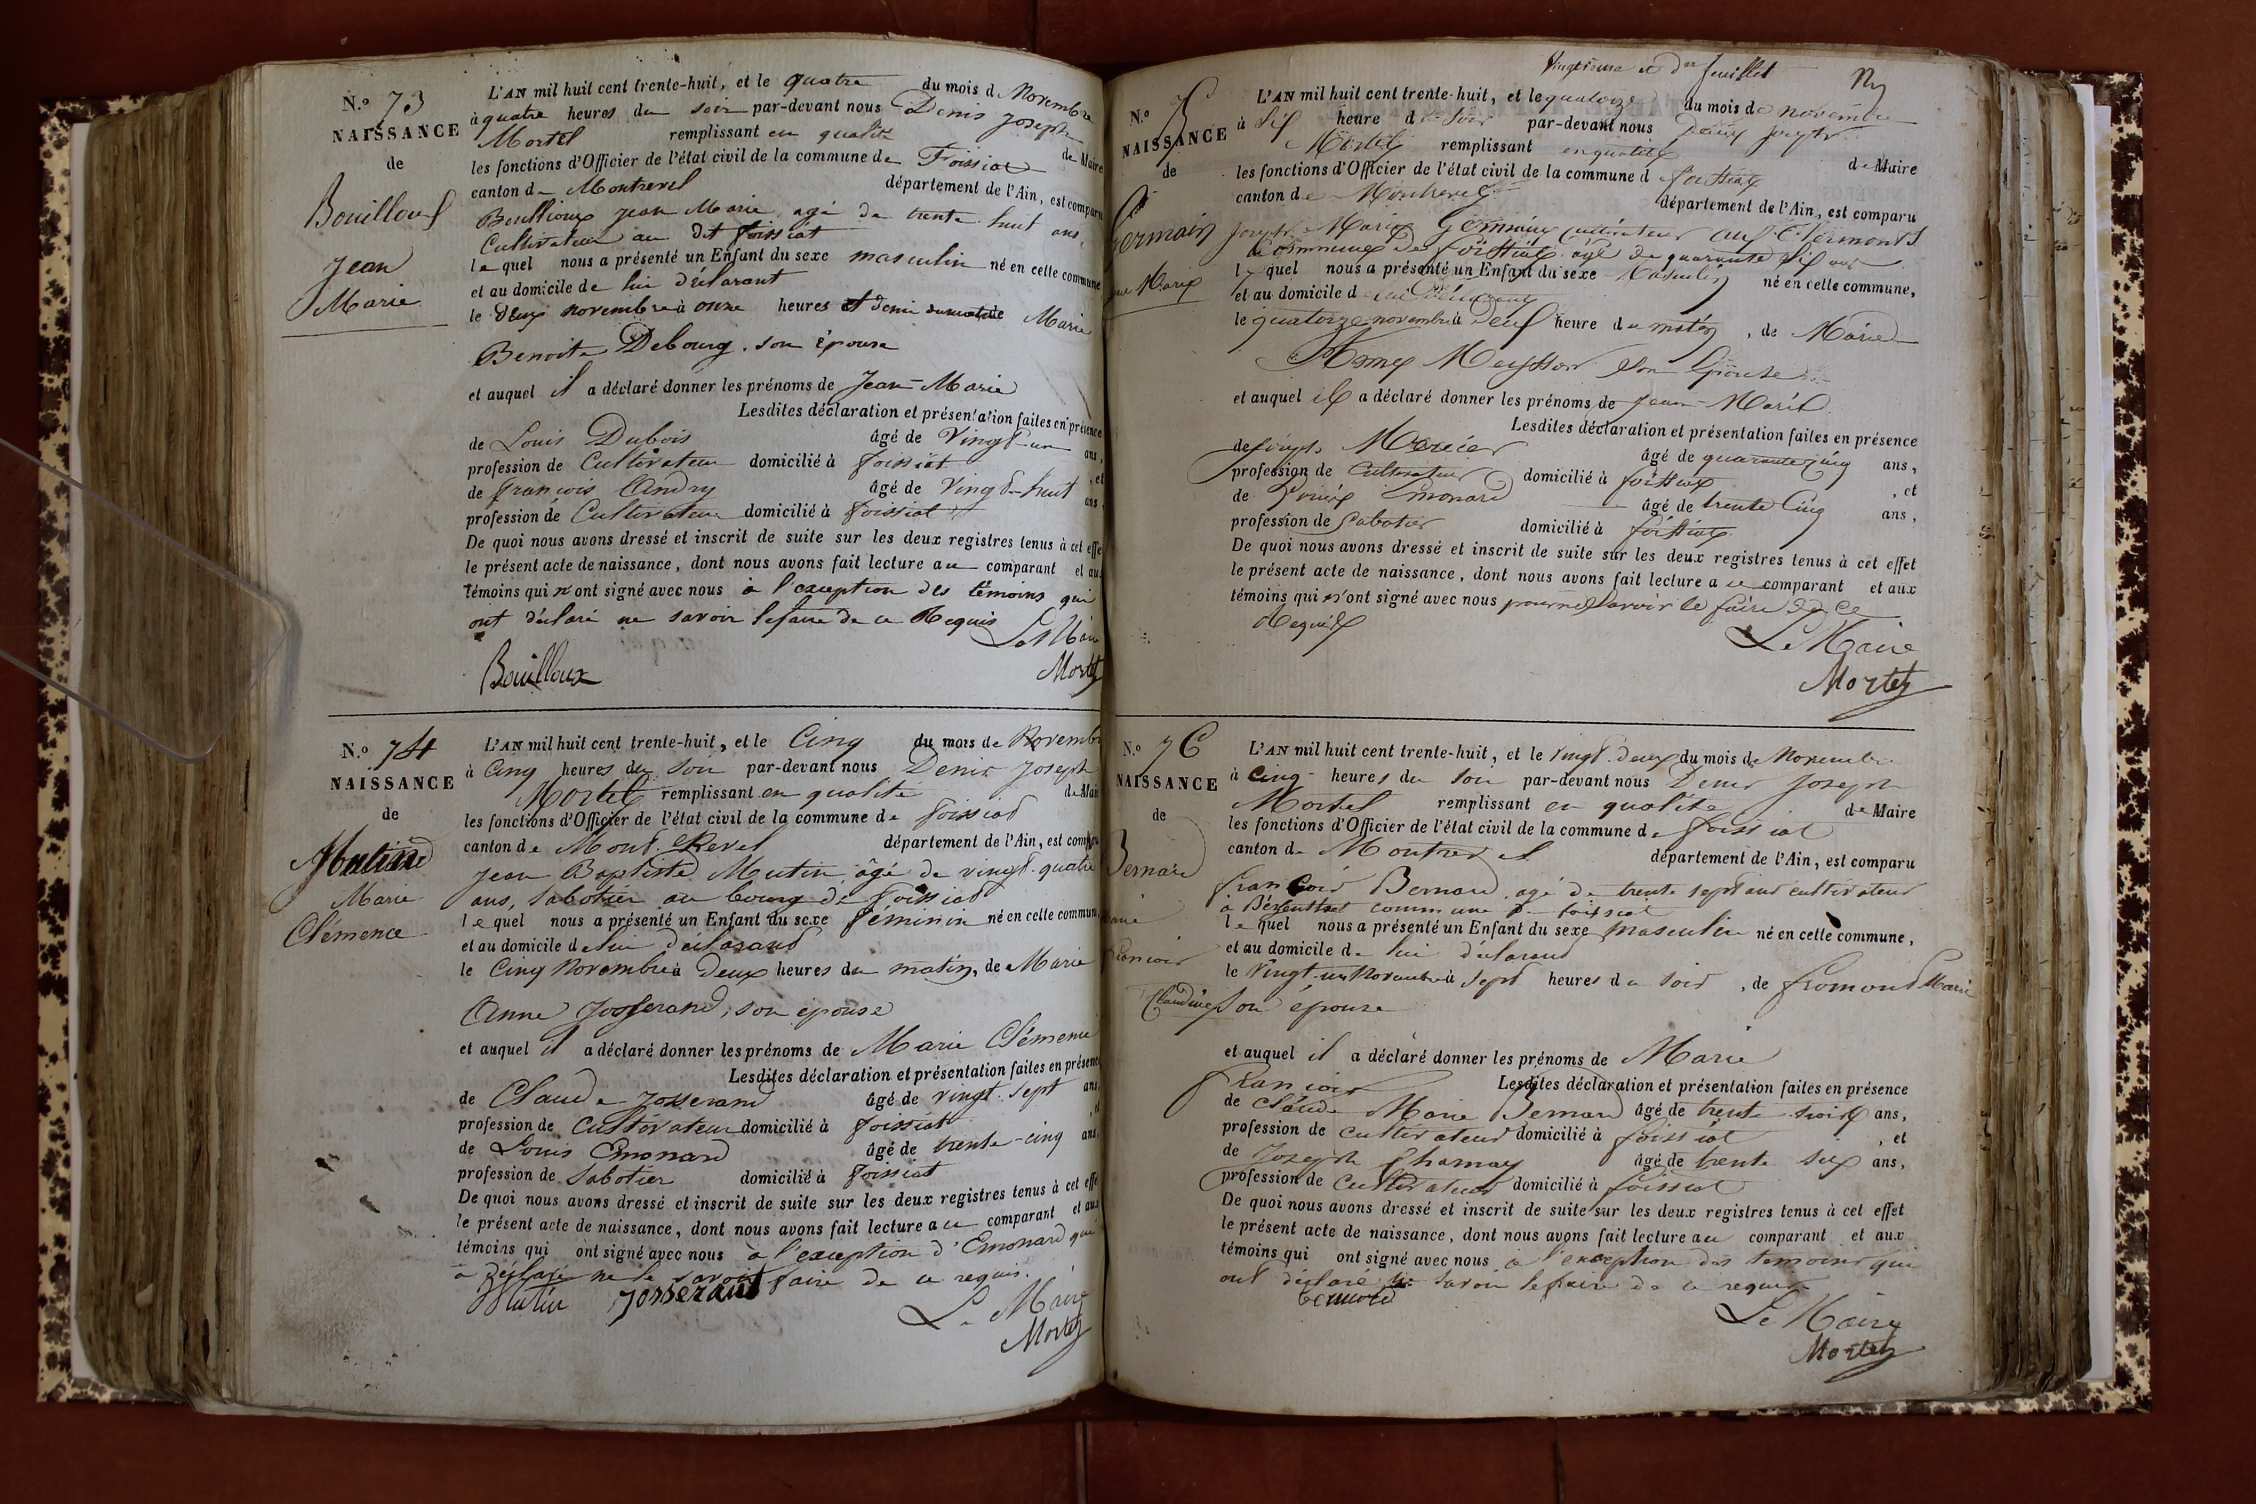 N.o 73
NAISSANCE
de
Bouilloux
Jean
Marie
L'AN mil huit cent trente-huit, et le quatre du mois de Novembre
à quatre heures du soir par-devant nous Denis Joseph
Mortel remplissant en qualité de Maire
les fonctions d'Officier de l'état civil de la commune de Foissiat
canton de Montrevel département de l'Ain, est comparu
Bouilloux Jean Marie agé de trente huit ans,
Cultivateur au dit foissiat
lequel nous a présenté un Enfant du sexe masculin né en cette commune
et au domicile de lui déclarant
le deux novembre à onze heures et demi du matin de Marie
Benoite Debourg, son épouse
et auquel il a déclaré donner les prénoms de Jean-Marie
Lesdites déclaration et présentation faites en présence
de Louis Dubois âgé de Vingt-un ans,
profession de Cultivateur domicilié à foissiat, et
de françois Andry âgé de Vingt-huit ans,
profession de Cultivateur domicilié à foissiat
De quoi nous avons dressé et inscrit de suite sur les deux registres tenus à cet effe
le présent acte de naissance, dont nous avons fait lecture au comparant et au
témoins qui n'ont signé avec nous à l'exception des témoins qui
ont déclaré ne savoir le faire de ce Requis
Le Maire
Bouilloux Mortel
N.o 74
NAISSANCE
de
Mutin
Marie
Clémence
L'AN mil huit cent trente-huit, et le Cinq du mois de Novembre
à Cinq heures du Soir par-devant nous Denis Joseph
Mortel remplissant en qualité de Maire
les fonctions d'Officier de l'état civil de la commune de foissiat
canton de Mont Revel département de l'Ain, est comparu
Jean Baptiste Mutin, âgé de vingt-quatre
ans, sabotier au bourg de Foissiat
lequel nous a présenté un Enfant du sexe féminin né en cette commune
et au domicile de lui déclarant
le Cinq Novembre à deux heures du matin, de Marie
Anne Josserand, son épouse
et auquel il a déclaré donner les prénoms de Marie Clémence
Lesdites déclaration et présentation faites en présence
de Claude Josserand âgé de vingt-sept ans
profession de Cultivateur domicilié à foissiat
de Louis Emonard âgé de trente-cinq ans,
profession de Sabotier domicilié à foissiat
De quoi nous avons dressé et inscrit de suite sur les deux registres tenus à cet effe
le présent acte de naissance, dont nous avons fait lecture au comparant et au
témoins qui ont signé avec nous à l'exception d'Emonard qui
a déclaré ne le savoir faire de ce requis.
Mutin Josserand Le Maire
Mortel
Vingtième et dr feuillet
N.o 75
NAISSANCE
de
Germain
Marie
L'AN mil huit cent trente-huit, et le quatorze du mois de novembre
à six heure du Soir par-devant nous Denis Joseph
Mortel remplissant en qualité de Maire
les fonctions d'Officier de l'état civil de la commune d foissiat
canton de Montrevel département de l'Ain, est comparu
Joseph Marie Germain Cultivateur aux Clermonts
Commune de foissiat agé de quarante six ans
lequel nous a présenté un Enfant du sexe Masculin né en cette commune,
et au domicile d lui déclarant
le quatorze novembre à Deux heure du matin, de Marie
Meysson son Epouse
et auquel il a déclaré donner les prénoms de Jean-Marie
Lesdites déclaration et présentation faites en présence
de Joseph Mercier âgé de quarante cinq ans,
profession de Cultivateur domicilié à foissiat, et
de Louis Emonard âgé de trente Cinq ans,
profession de Sabotier domicilié à foissiat
De quoi nous avons dressé et inscrit de suite sur les deux registres tenus à cet effet
le présent acte de naissance, dont nous avons fait lecture au comparant et aux
témoins qui n'ont signé avec nous pour ne savoir le faire de ce
Requis
Le Maire
Mortel
N.o 76
NAISSANCE
de
Bernard
Marie
françois
L'AN mil huit cent trente-huit, et le vingt-deux du mois de Novembre
à Cinq heures du Soir par-devant nous Denis Joseph
Mortel remplissant en qualité de Maire
les fonctions d'Officier de l'état civil de la commune de foissiat
canton de Montrevel département de l'Ain, est comparu
françois Bernard, agé de trente sept ans cultivateur
à commune de foissiat
lequel nous a présenté un Enfant du sexe masculin né en cette commune,
et au domicile de lui déclarant
le Vingt-un Novembre à sept heures du soir, de fromont Marie
Claudine son épouse
et auquel il a déclaré donner les prénoms de Marie
françois Lesdites déclaration et présentation faites en présence
de Claude Marie Bernard âgé de trente-trois ans,
profession de cultivateur domicilié à foissiat, et
de Joseph Chamay âgé de trente six ans,
profession de Cultivateur domicilié à foissiat
De quoi nous avons dressé et inscrit de suite sur les deux registres tenus à cet effet
le présent acte de naissance, dont nous avons fait lecture au comparant et aux
témoins qui ont signé avec nous à l'exception des temoins qui
ont déclaré ne savoir le faire de ce requis
Bernard Le Maire
Mortel